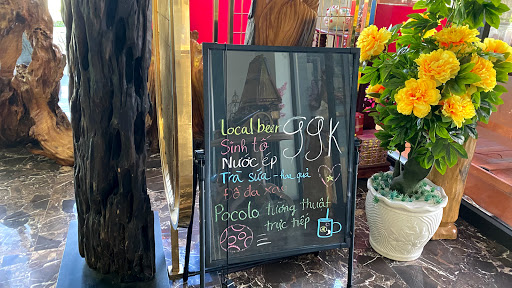 local beer 99K
Sinh tố
Nước ép
Trà sữa - hoa quả
Đồ đá xay
Pocolo tường thuật
trực tiếp